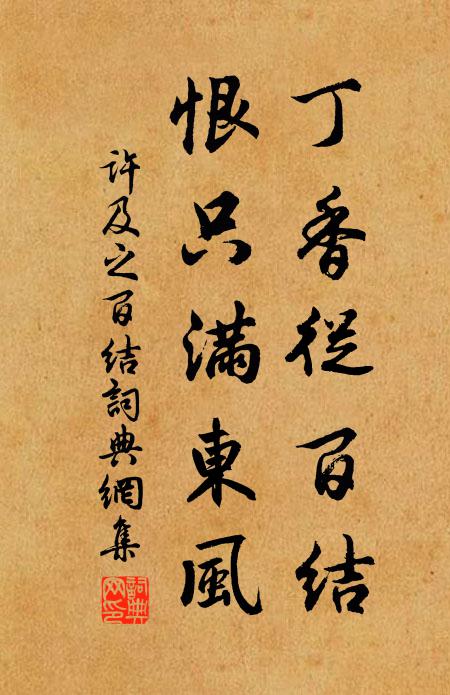 丁香從百結
恨只滿東風
许及之百结詞典網集
詞典
网印